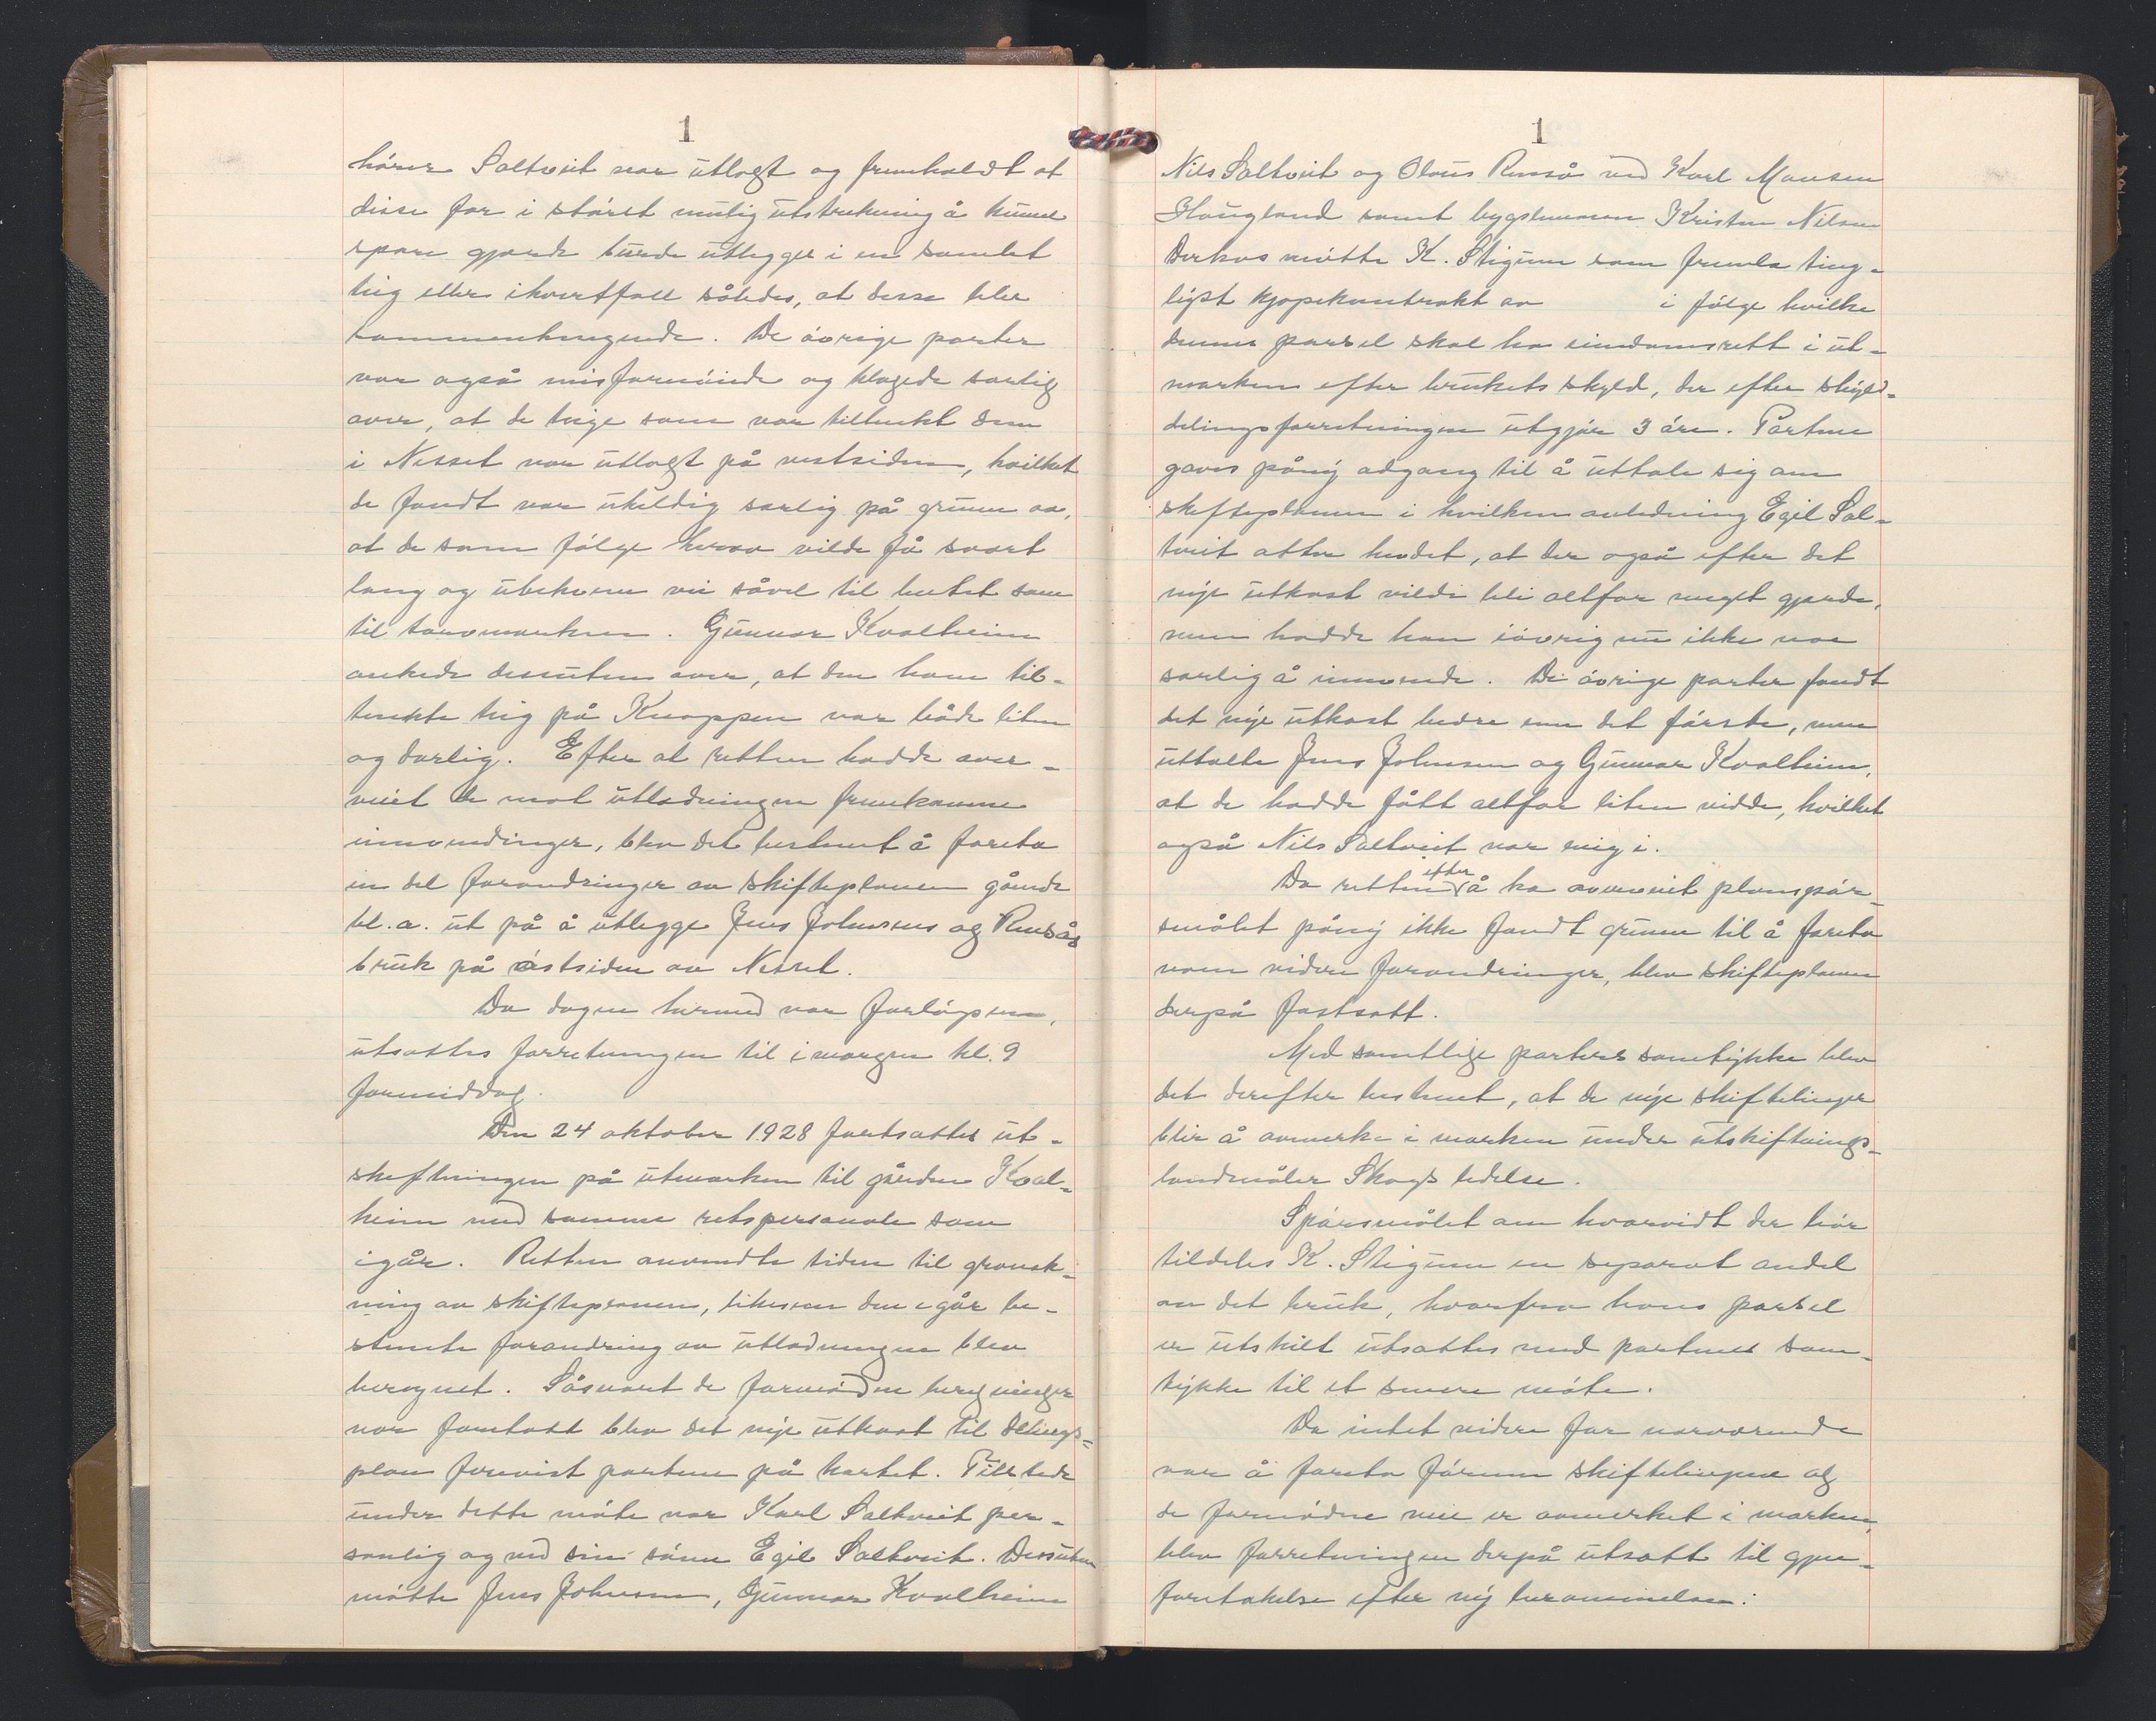 1
hører Saltveit var utlagt og fremholdt at
disse for i størst mulig utstrekning å kunne
spare gjerde burde utlegges i en samlet
teig eller ihvertfall således, at disse blev
sammenhengende. De øvrige parter
var også misfornøide og klagede særlig
over, at de teige som var tiltenkt dem
i Nesset var utlagt på vestsiden, hvilket
de fandt var uheldig særlig på grunn av,
at de som følge herav vilde få svært
lang og ubekvem vei såvel til beitet som
til torvmarken. Gunnar Kvalheim
ankede dessuten over, at den ham til-
tenkte teig på Knappen var både liten
og dårlig. Efter at retten hadde over-
veiet de mot utlodningen fremkomne
innvendinger, blev det bestemt å foreta
en del forandringer av skifteplanen gående
bl.a. ut på å utlegge Jens Johnsens og Rensås
bruk på østsiden av Nesset.
Da dagen hermed var forløpen,
utsattes forretningen til imorgen kl. 9
formiddag.
Den 24 oktober 1928 fortsattes ut-
skiftningen på utmarken til gården Kval-
heim med samme retspersonale som
igår. Retten anvendte tiden til gransk-
ning av skifteplanen, likesom den igår be-
stemte forandring av utlodningen blev
beregnet. Såsnart de fornødne beregninger
var foretatt blev det nye utkast til delings-
plan forevist partene på kartet. Tilstede
under dette møte var Karl Saltveit per-
sonlig og ved sin sønn Egil Saltveit. Dessuten
møtte Jens Johnsen, Gunnar Kvalheim
1
Nils Saltveit og Olaus Renså ved Karl Monsen
Haugland samt bygslemann Kristen Nilsen
Derhos møtte K. Stigum som fremla ting-
lyst kjøpekontrakt av i følge hvilke
denne parsel skal ha eiendomsrett i ut-
marken efter brukets skyld, der efter skyld-
delingsforretningen utgjør 3 øre. Partene
gaves påny adgang til å uttale sig om
skifteplanen i hvilken anledning Egil Sal-
tveit atter hevdet, at der også efter det
nye utkast vilde bli altfor meget gjerde,
men hadde han iøvrig nu ikke noe
særlig å innvende. De øvrige parter fandt
det nye utkast bedre enn det første, men
uttalte Jens Johnsen og Gunnar Kvalheim,
at de hadde fått altfor liten vidde, hvilket
også Nils Saltveit var enig i.
Da retten efter å ha overveiet planspør-
smålet påny ikke fandt grunn til å foreta
noen videre forandringer, blev skifteplanen
derpå fastsatt.
Med samtlige parters samtykke blev
det derefter bestemt, at de nye skiftelinjer
blir å avmerke i marken under utskiftnings-
landmåler Skogs ledelse.
Spørsmålet om hvorvidt der bør
tildeles K. Stigum en separat andel
av det bruk, hvorfra hans parsel
er utskilt utsattes med partenes sam-
tykke til et senere møte.
Da intet videre for nærværende
var å foreta førenn skiftelinjene og
de fornødne veie er avmerket i marken,
blev forretningen derpå utsatt til gjen-
foretakelse efter ny berammelse.